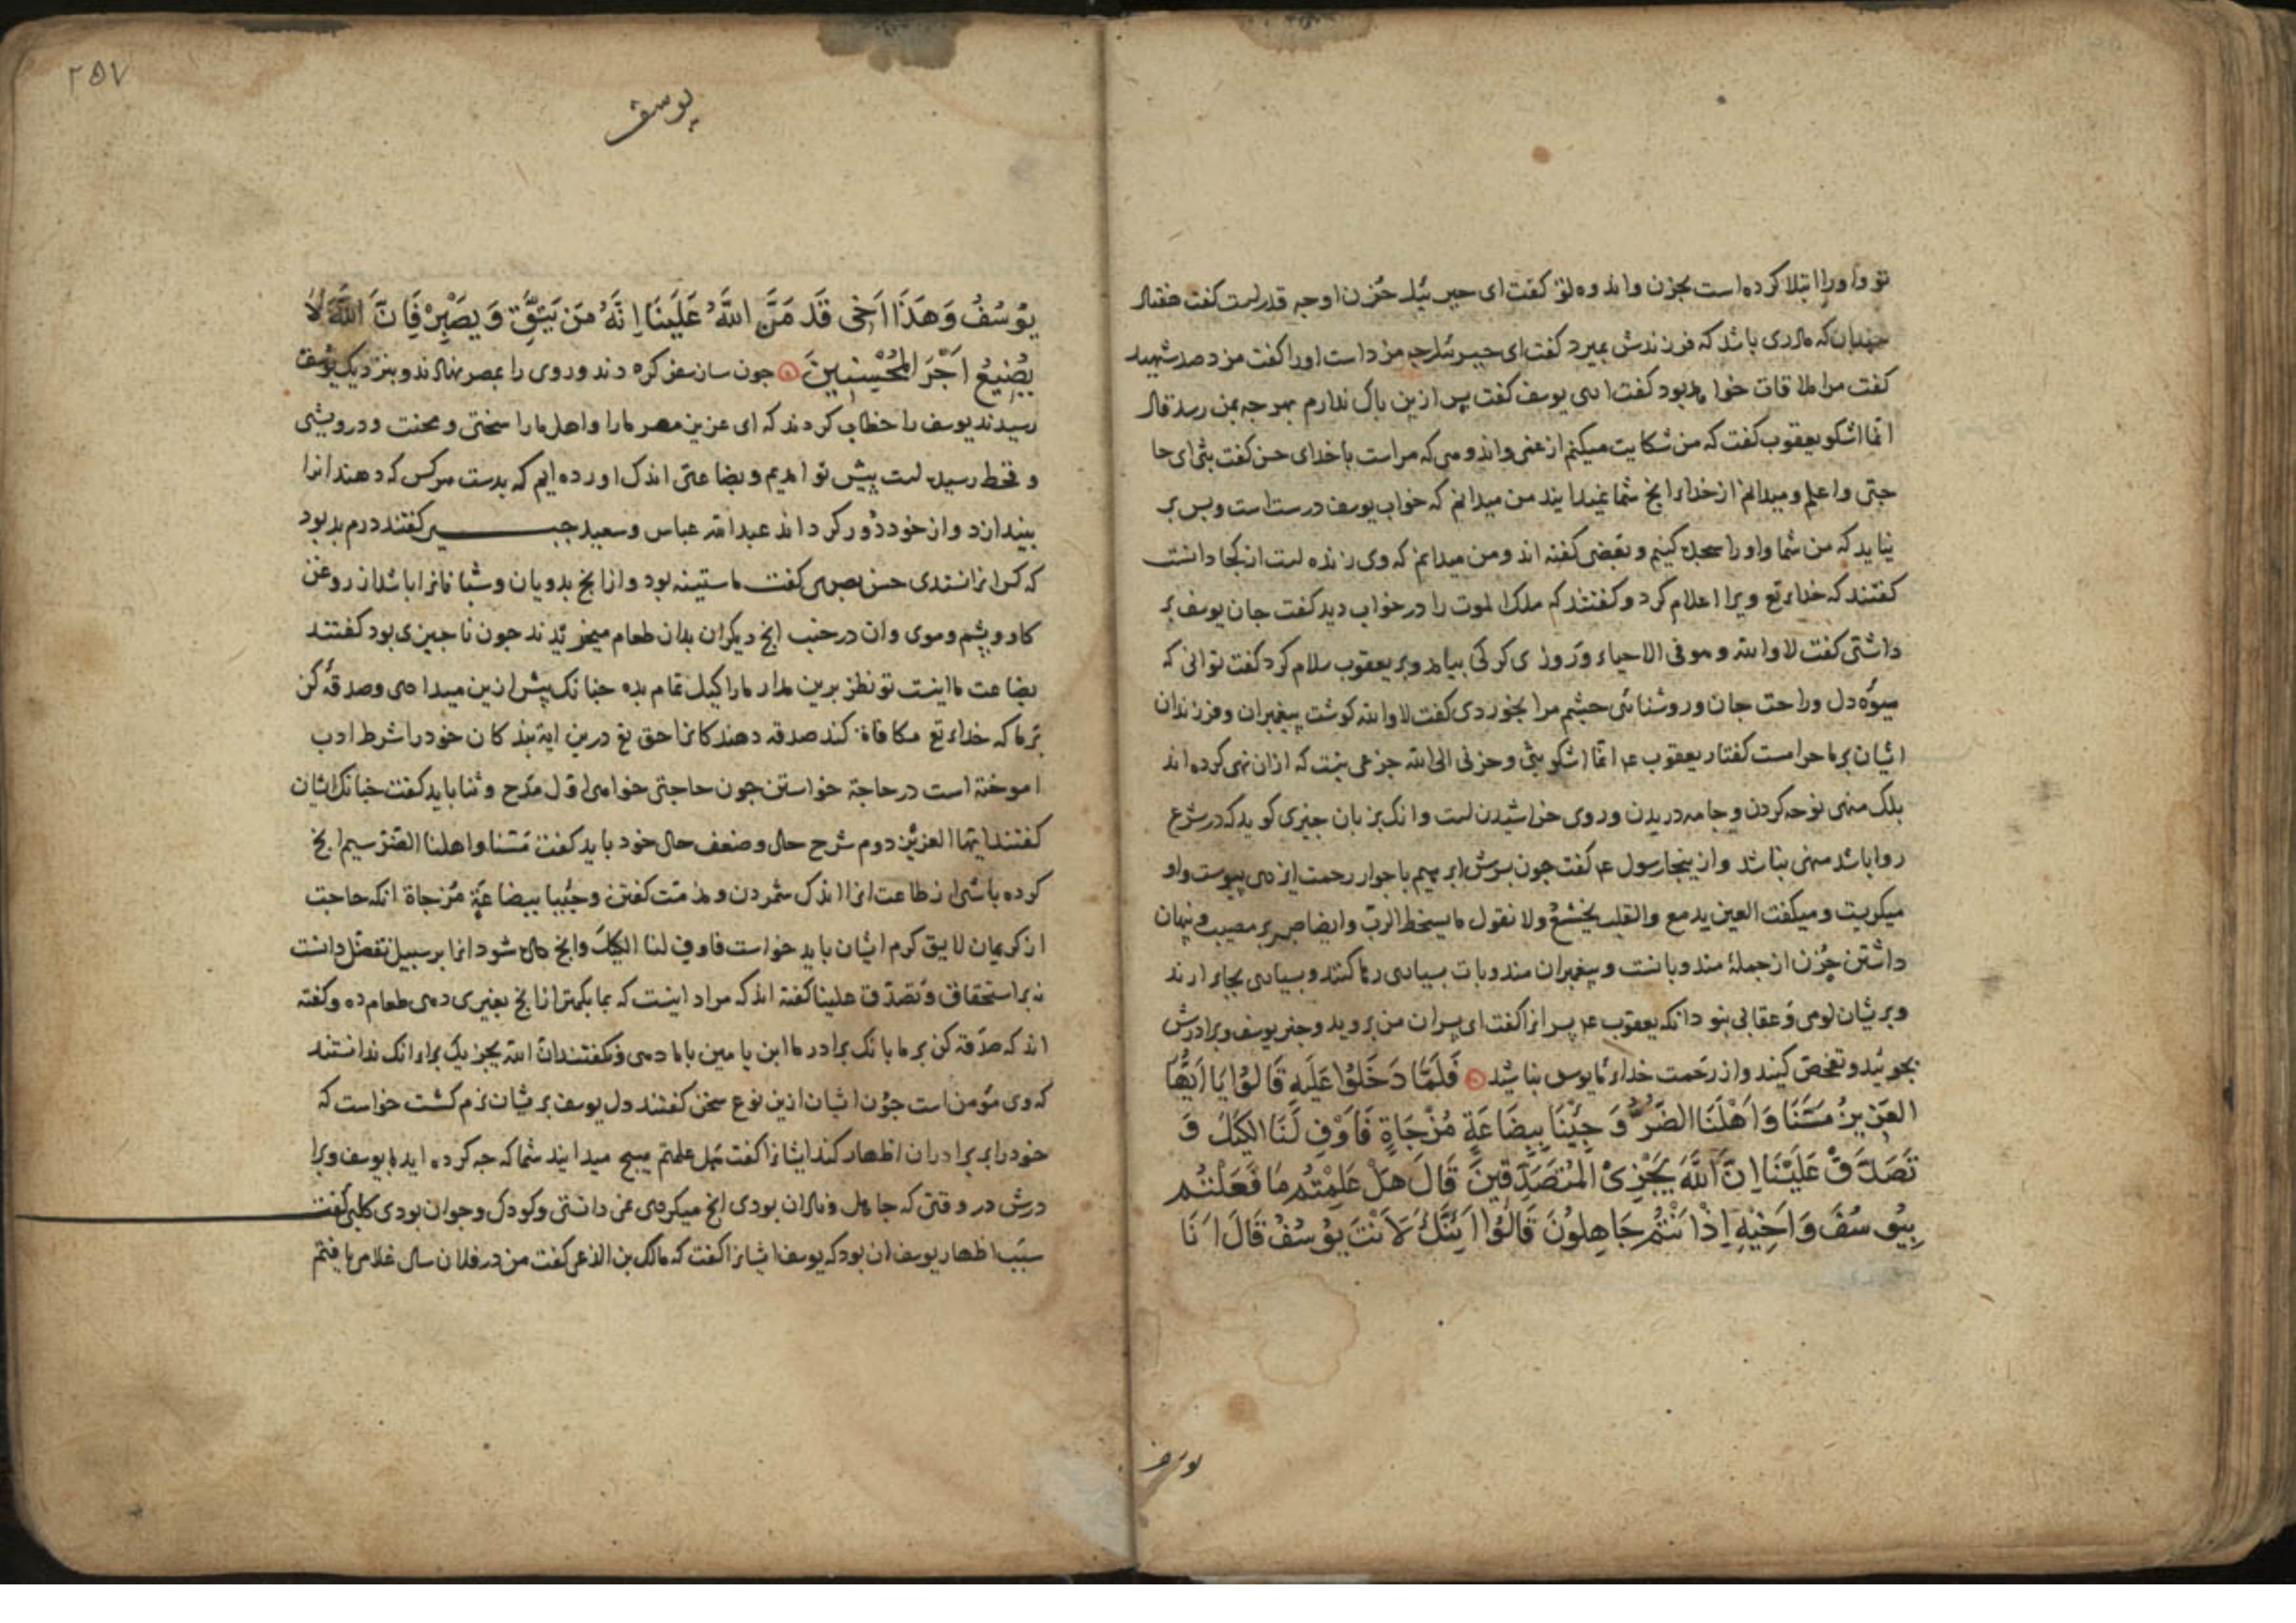 تو و او را ابتلا کرده است بحزن و اندوه تو گفت ای جبرئیل حزن او چه قدر است گفت هفتاد
چندان که مادری باشد که فرزندش بمیرد گفت ای جبرئیل چه مزد است او را گفت مزد صد شهید
گفت مرا ملاقات خواهد بود گفت اری یوسف گفت پس ازین باک ندارم بهرچه بمن رسد قال
انما اشکو یعقوب گفت که من شکایت میکنم از غمی و اندوهی که مراست با خدای حسن گفت بثی ای حا
جتی و اعلم و میدانم از خداء انج شما نمیدانید من میدانم که خواب یوسف درست است و بس بر
نیاید که من شما و او را سجده کنیم و بعضی گفته اند و من میدانم که وی زنده است از کجا دانست
گفتند که خداء تع ویرا اعلام کرد و گفتند که ملک الموت را در خواب دید گفت جان یوسف بر
داشتی گفت لا والله و هو فی الاحیاء و روزی کرکی بیامد و بر یعقوب سلام کرد گفت توانی که
میوه دل و راحت جان و روشنائی چشم مرا بخوردی گفت لا والله گوشت پیغمبران و فرزندان
ایشان بر ما حرامست گفتار یعقوب ع انما اشکو بثی و حزنی الی الله جزعی نیست که ازان نهی کرده اند
بلک منهی نوحه کردن و جامه دریدن و روی خراشیدن است و انک بزبان چیزی گوید که در شرع
روا باشد منهی نباشد و ازینجا رسول ع گفت چون پسرش ابرهیم با جوار رحمت ایزدی پیوست و او
میگریست و میگفت العین یدمع والقلب یخشع ولا نقول ما یسخط الرب و ایضا صبر بر مصیبت و پنهان
داشتن حزن از جملۀ مندوباتست و پیغمبران مندوبات بسیاری رها کنند و بسیاری بجای ارند
و بریشان لومی و عقابی بنود انکه یعقوب ع پسرانرا گفت ای پسران من بروید و خبر یوسف و برادرش
بجوئید و تفحص کنید و از رحمت خداء مایوس نباشید فَلَمَّا دَخَلُوا عَلَیهِ قَالُوا یَا اَیُّهَا
العَزِیزُ مَسَّنَا وَاَهْلَنَا الضُّرُّ وَ جِئْنَا بِبِضَاعَةٍ مُزْجَاةٍ فَاَوْفِ لَنَا الکَیْلَ وَ
تَصَدَّقْ عَلَیْنَا اِنَّ اللَّهَ یَجْزِی المُتَصَدِّقِینَ قَالَ هَلْ عَلِمْتُم مَا فَعَلْتُم
بِیُوسُفَ وَاَخِیْهِ اِذْ اَنْتُمْ جَاهِلُونَ قَالُوا اَئِنَّکَ لَاَنْتَ یُوْسُفُ قَالَ اَنَا
یوسف
۲۵۷
یوسف
یُوْسُفُ وَهَذَا اَخِی قَد مَنَّ اللَّهُ عَلَیْنَا اِنَّهُ مَن یَتَّقِ وَیَصْبِرْ فَاِنَّ اللَّهَ لَا
یُضِیعُ اَجْرَ المُحْسِنِینَ چون ساز سفر کردند و روی را بمصر نهادند و بنزدیک یوسف
رسیدند یوسف را خطاب کردند که ای عزیز مصر ما را و اهل ما را سختی و محنت و درویشی
و قحط رسیده است پیش تو امدیم و بضاعتی اندک اورده ایم که بدست هرکس که دهند انرا
بیندازد و از خود دور کرداند عبدالله عباس و سعید جبیر گفتند درم بد بود
که کس انرا نستدی حسن بصری گفت ماستینه بود و ازانج بدویان و شبانانرا باشد از روغن
کاو و پشم و موی و ان در جنب انج دیکران بدان طعام میخریدند چون ناچیزی بود گفتند
بضاعت ما اینست تو نظر برین مدار ما را کیل تمام بده چنانک پیش ازین میدادی و صدقه کن
بر ما که خداء تع مکافاة کند صدقه دهندکانرا حق تع درین ایة بندکان خود را شرط ادب
اموخته است در حاجة خواستن چون حاجتی خواهی اول مدح و ثنا باید گفت چنانک ایشان
گفتند ایها العزیز دوم شرح حال و ضعف حال خود باید گفت مسنا واهلنا الضر سیم انج
کرده باشی از طاعت انرا اندک شمردن و مذمت گفتن وجئنا ببضاعة مزجاة انکه حاجت
از کریمان لایق کرم ایشان باید خواست فاوف لنا الکیل و انج داده شود انرا بر سبیل تفضل دانست
نه بر استحقاق و تصدق علینا گفته اند که مراد اینست که بما بکمتر ازانج بغیری دهی طعام ده و گفته
اند که صدقه کن بر ما بانک برادر ما ابن یامین باما دهی و نکفتند ان الله یجزیک براء انک ندانستند
که وی مؤمن است چون ایشان ازین نوع سخن گفتند دل یوسف بریشان نرم گشت خواست که
خود را بر برادران اظهار کند ایشانرا گفت هل علمتم هیچ میدانید شما که چه کرده اید با یوسف و برا
درش در وقتی که جاهل و نادان بودی انج میکردی نمی دانستی و کودک و جوان بودی کلبی گفت
سبب اظهار یوسف ان بود که یوسف ایشانرا گفت که مالک بن الذعر گفت من در فلان سال غلامی یافتم